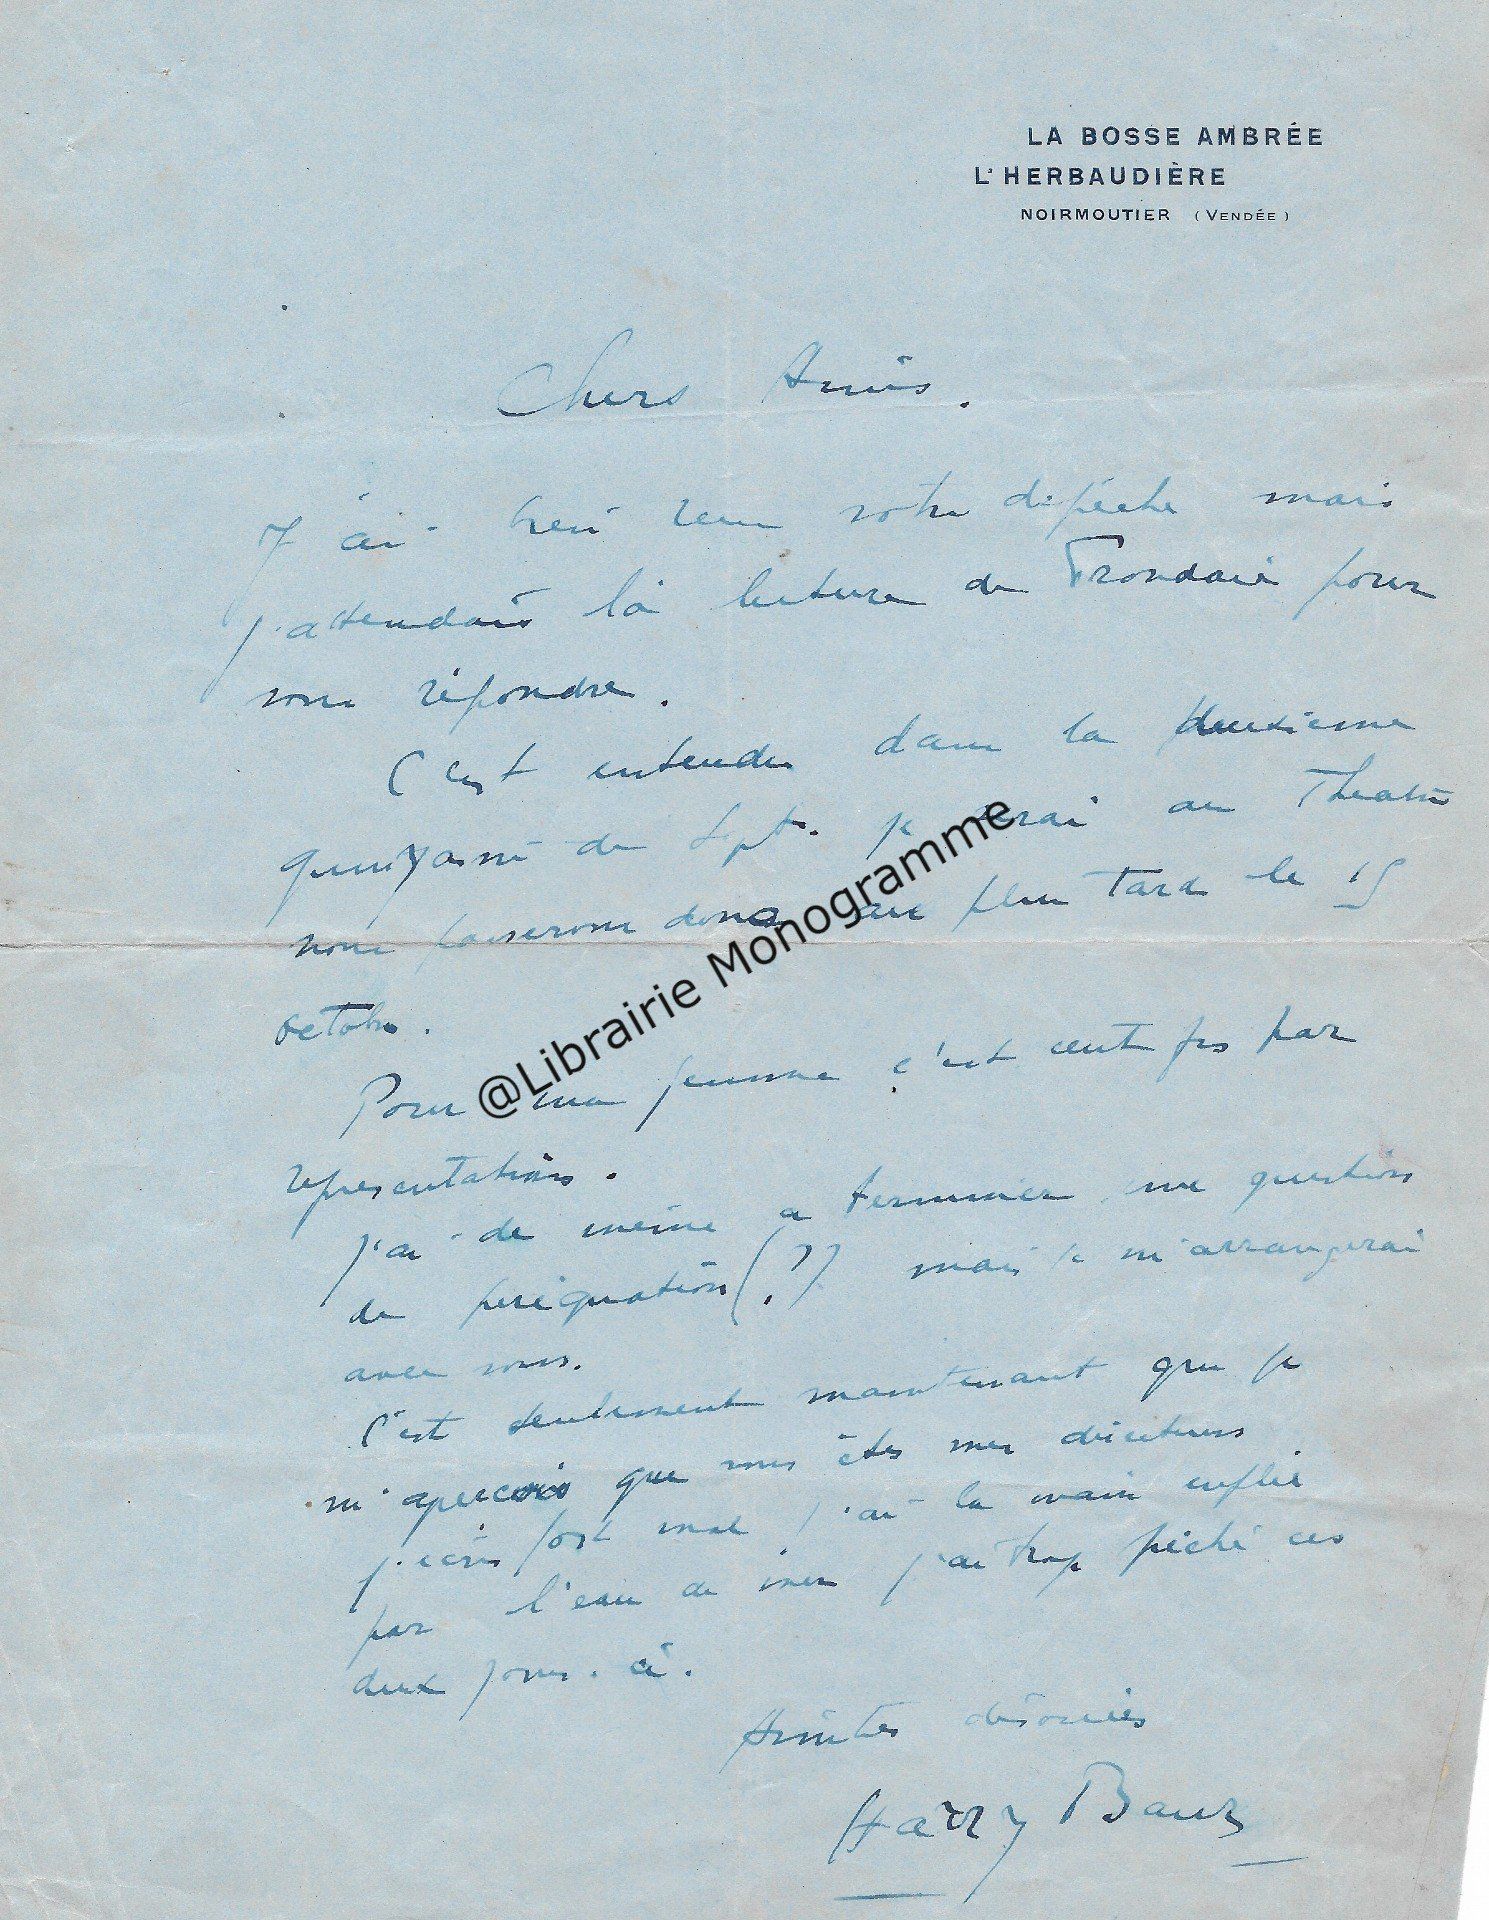 LA BOSSE AMBRÉE
L'HERBAUDIÈRE
NOIRMOUTIER (VENDÉE)
Chers Amis.
J'ai bien reçu votre dépêche mais
j'attendais la lecture de Frondaie pour
vous répondre.
C'est entendu dans la deuxieme
quinzaine de Sept. je serai au Theatre
nous passerons donc au plus tard le 15
octobre.
Pour ma femme c'est cent frs par
representations.
j'ai de meme a terminer une question
de perequation (?) mais je m'arrangerai
avec vous.
C'est seulement maintenant que je
m'apercois que vous êtes mes directeurs
j'ecris fort mal j'ai la main enflée
par l'eau de mer j'ai trop pêché ces
deux jours-ci.
Amities
Harry Baur
@Librairie Monogramme